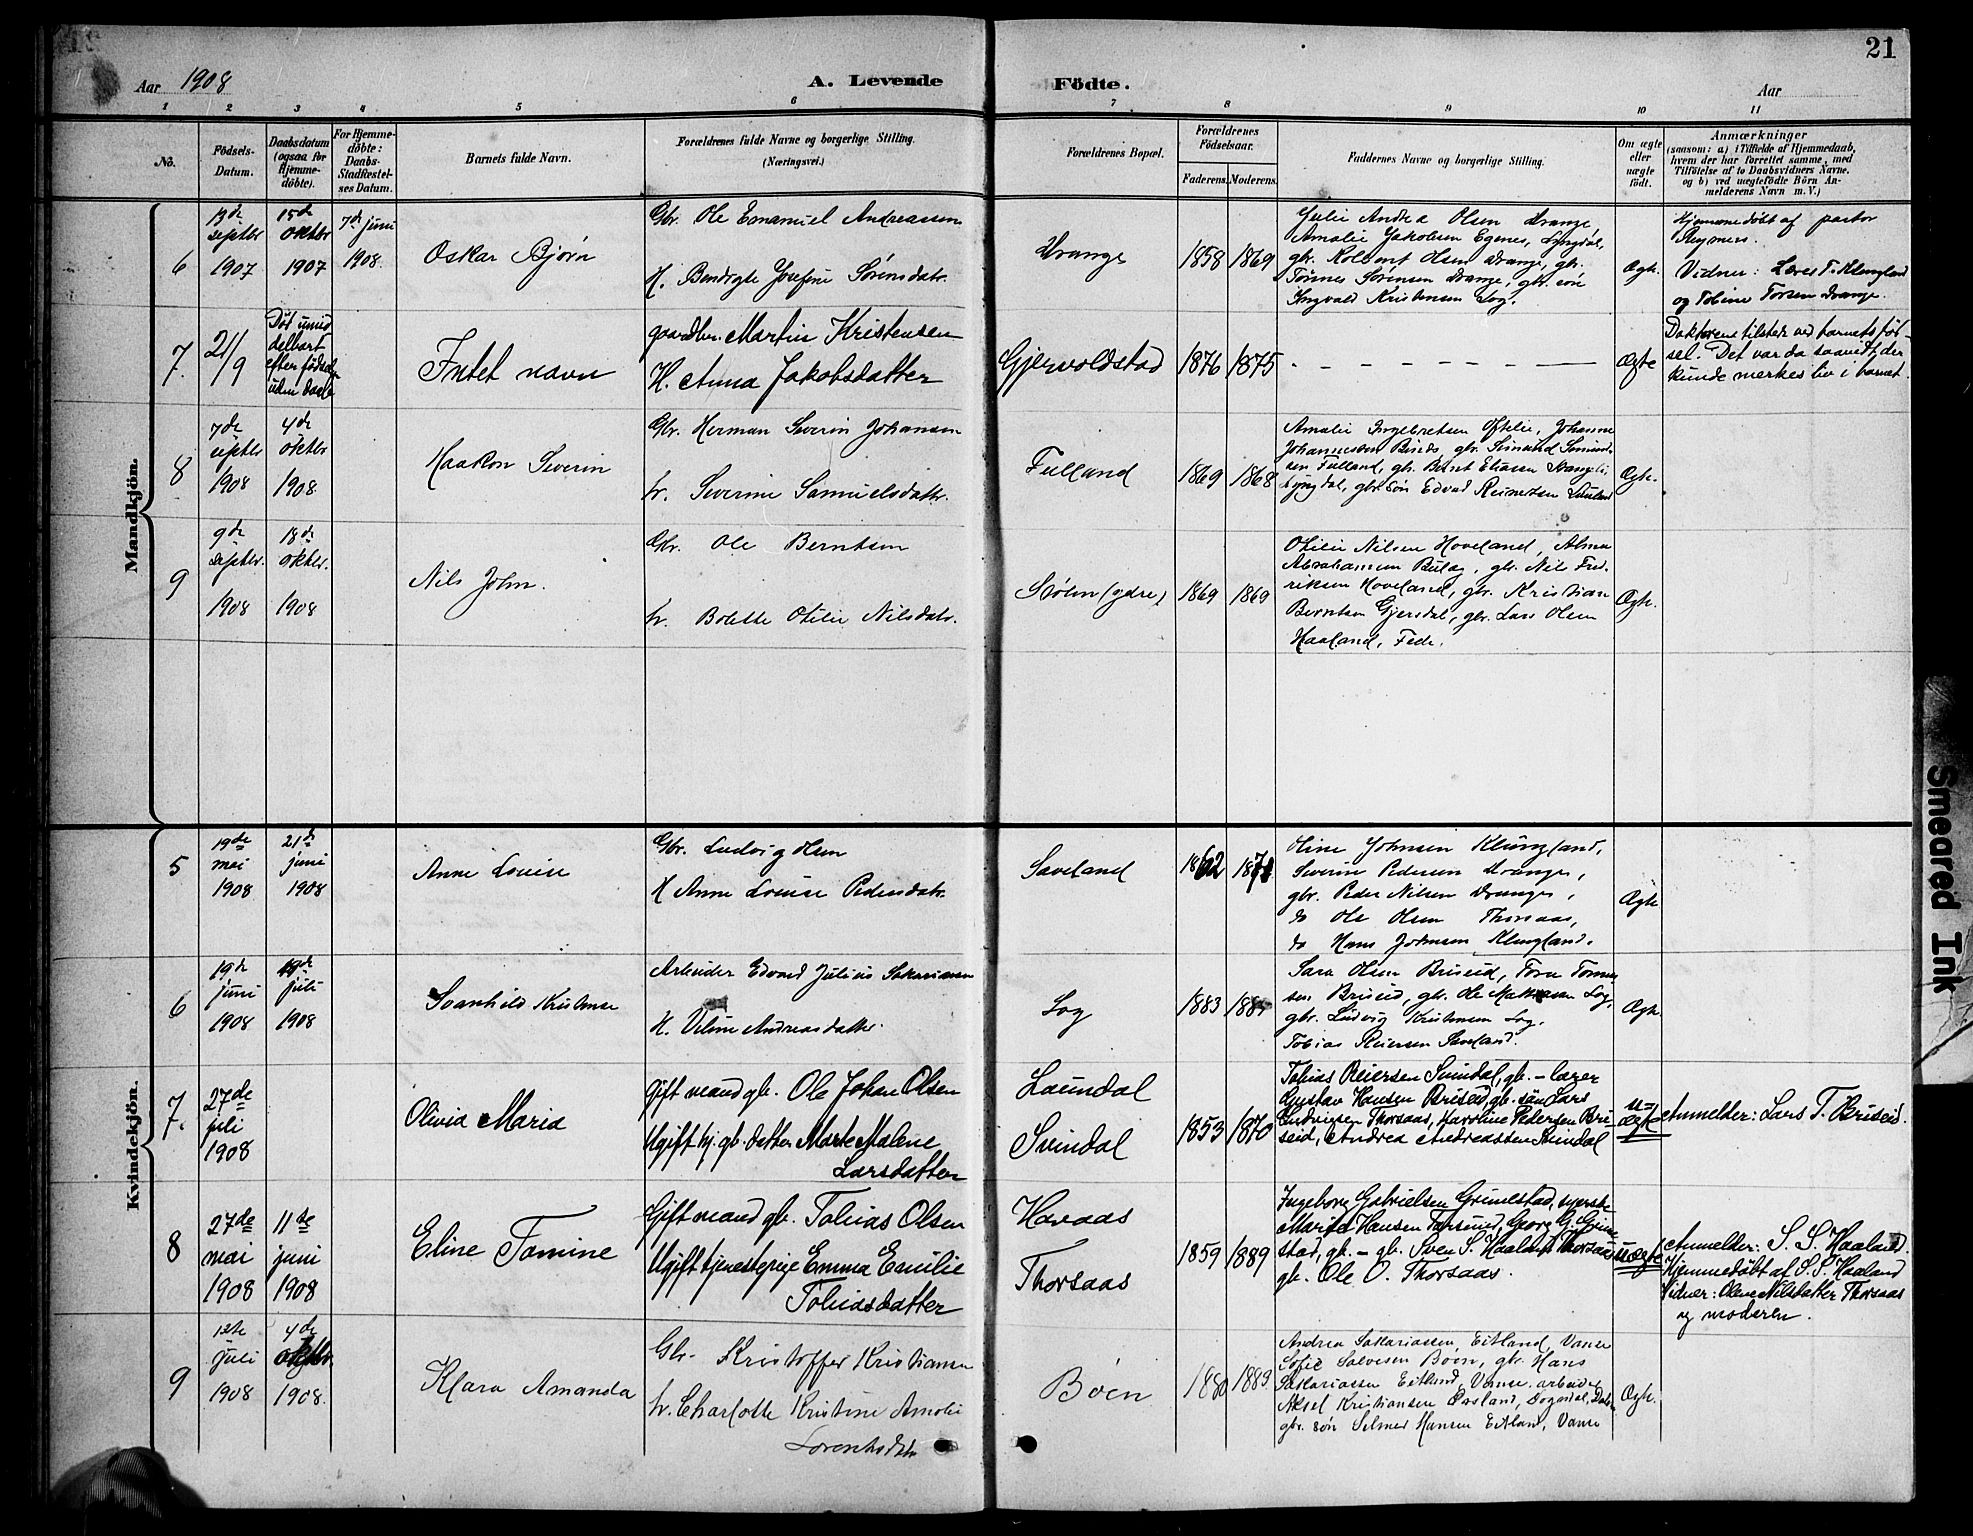 21
Aar 1908
A. Levende
Födte.
Aar
1 2 3 4 5 6 7 8 9 10 11
No.
Födsels-
Datum.
Daabsdatum
(ogsaa for
Hjemme-
döbte).
For Hjemme-
döbte:
Daabs-
Stadfæstel-
ses Datum.
Barnets fulde Navn.
Forældrenes fulde Navne og borgerlige Stilling.
(Næringsvei.)
Forældrenes Bopæl.
Forældrenes
Födselsaar.
Faderens.
Moderens.
Faddernes Navne og borgerlige Stilling.
Om ægte
eller
uægte
födt.
Anmærkninger
(saasom: a) i Tilfælde af Hjemmedaab,
hvem der har forrettet samme, med
Tilföielse af to Daabsvidners Navne.
og b) ved uægtefödte Börn An-
melderens Navn m. V.)
Mandkjön.
6
septbr
1907
15de
oktbr
1907
7de juni
1908.
Oskar Bjørn
Gbr. Ole Emanuel Andreassen
H. Bendigte Josefine Sørensdatr.
Drange
1858
1869
Julie Andrea Olsen Drange,
Amalie Jakobsen Egenes, Lyngdal,
gbr. Kolbent Olsen Drange, gbr.
Tønnes Sørensen Drange, gbr. søn
Ingvald Kristensen Log.
Ægte.
Hjemmedøbt af pastor
Vidner: Lærer T. Klungland
og Tobine Torsen Drange.
7.
21/9
Død umid
delbart
efter fødsel
uden daab
Intet navn
gaardbr. Martin Kristensen
H. Anna Jakobsdatter
Gjervoldstad
1876
1875
Ægte
Doktorene tilstede ved barnets fød-
sel. Det var da saavidt der
kunde merkes liv i barnet.
8
7de
septbr
1908
4de
oktbr
1908.
Haakon Severin
Gbr. Herman Severin Johansen
h. Severine Samuelsdatr.
Fulland
1869
1868
Amalie Ingebretsen Oftelie, Johanne
sen Fulland, gbr. Bernt Eliassen
Lyngdal, gbr. søn Edvard Reinertsen
Ægte.
9
9de
septbr.
1908
18de
oktbr.
1908
Nils John.
Gbr. Ole Berntsen
h. Bolette Otilie Nilsdatr.
Støen (ydre)
1869
1869
Otilie Nilsen Hoveland, Alma
Abrahamsen Bulag, gbr. Nils Fred-
riksen Hoveland, gbr. Kristian
Berntsen Gjersdal, gbr. Lars Olsen
Haaland, Fede.
Ægte.
Kvindekjön.
5
19de
mai
1908
21de
juni
1908
Anne Louise
Gbr. Ludvig Olsen
H Anne Louise Pedersdatr.
Saveland
1862
1871
Oline Johnsen Klungland,
Severine Pedersen Drange,
gbr. Peder Nilsen Drange,
do Ole Olsen Thorsaas,
do Hans Johnsen Klungland.
Ægte
6
19de
juni
1908
19de
juli
1908
Svanhild Kristense
Arbeider Edvard Julius Sakariassen
H. Vilme Andreasdatter.
Log
1883
Sara Olsen Briseid, Tora Tønnes
sen Briseid, gbr. Ole Mathiassen Log,
gbr. Ludvig Kristensen Log.
Tobias Reiersen Saveland.
Ægte.
7.
27de
juli
1908
Olivia Maria
Gift mand gb. Ole Johan Olsen
Ugift hj. gb. datter Marte Malene
Larsdatter
Laundal
Svindal
1853
1870
Tobias Reiersen Svindal, gb. – lærer
Gustav Hansen Briseid, gb. søn Lars
Ludvigsen Thorsaas, Karoline Pedersen Bri-
seid, Andrea Andreassen Svindal
u-
ægte
Anmelder: Lars T. Briseid.
8
27de
mai
1908
11te
juni
1908
Eline Tomine
Gift mand gb. Tobias Olsen
Ugift tjenestepige Emma Emilie
Tobiasdatter
Havaas
Thorsaas
1859
1889
Ingeborg Gabrielsen Grimestad, syerske
Marie Hansen Farsund, Georg G. Grime
stad, gb. – gb. Sven S. Haaland Thorsaas
gb. Ole O. Thorsaas.
uægte
Anmelder: S. S. Haaland.
Hjemmedøbt af S. S. Haaland
Vidner: Olene Nilsdatter Thorsaas
og moderen.
9
12te
juli
1908
4de
oktbr
1908.
Klara Amanda
Gbr. Kristoffer Kristiansen
h. Charlotte Kristine Amalie
Lorentsdatr
Bøen
1880
1889
Andrea Sakariassen, Eitland, Vanse
Sofie Salvesen Bøen, gbr. Hans
Sakariassen Eitland, Vanse, arbeider
Aksel Kristiansen
gbr. søn Selmer Hansen Eitland, Vanse
Ægte.
Smeared Ink